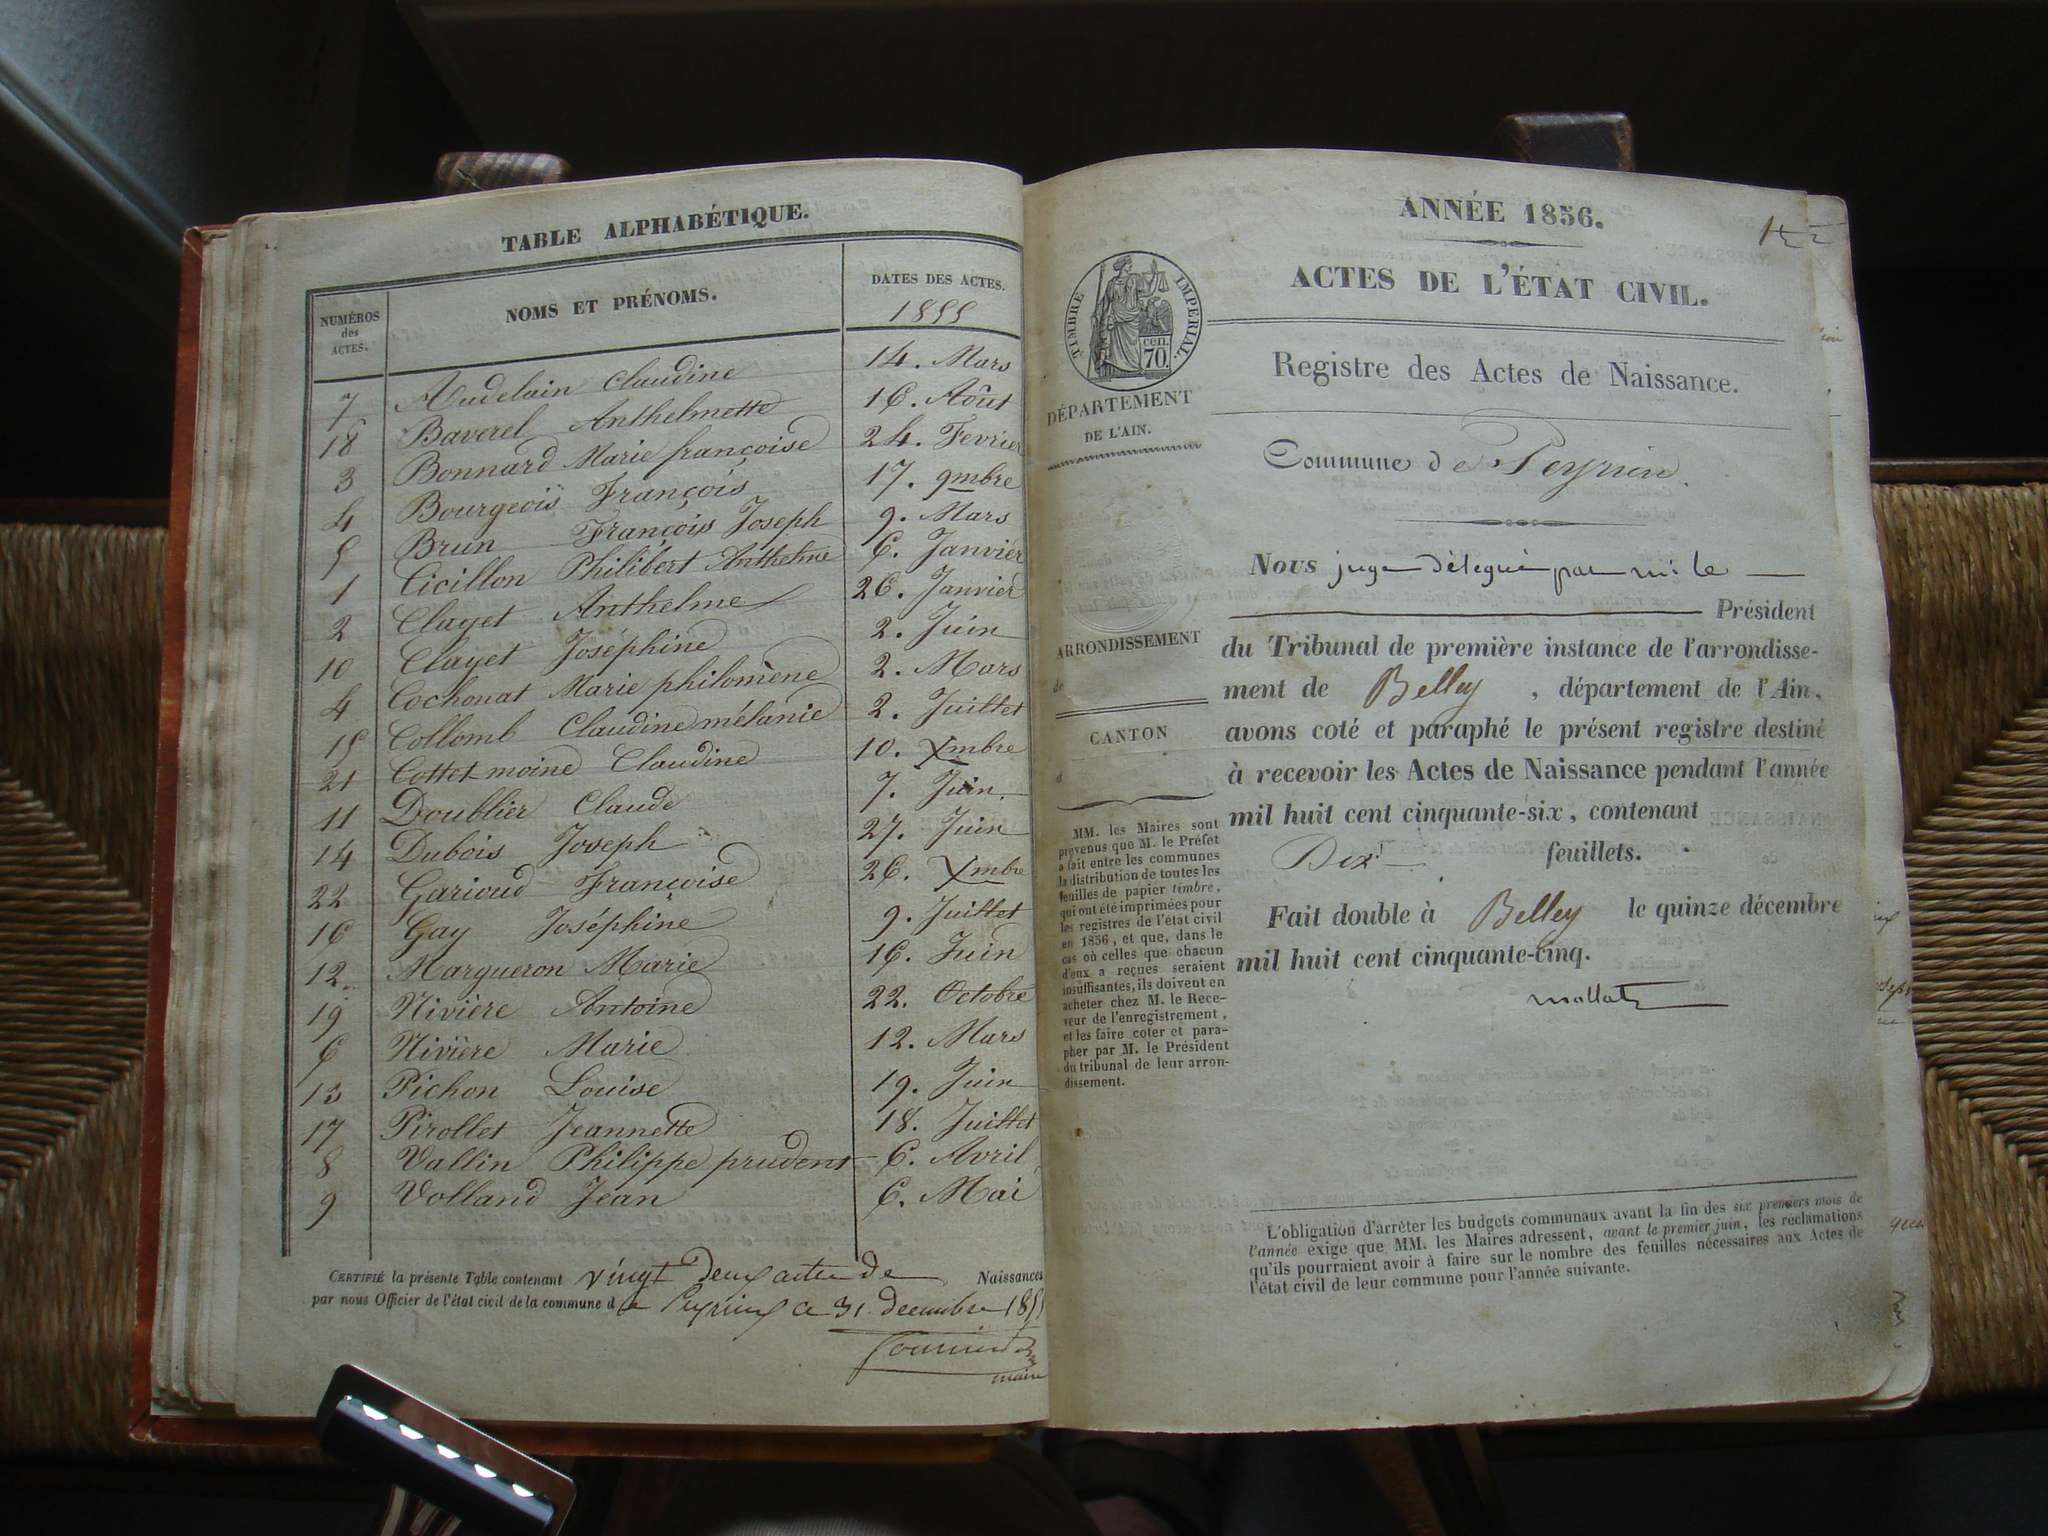 TABLE ALPHABÉTIQUE.
NUMÉROS des ACTES. NOMS ET PRÉNOMS. DATES DES ACTES.
1855
7 Audelain Claudine 14. Mars
18 Baverel Anthelmette 16. Août
3 Bonnard Marie françoise 24. Fevrier
4 Bourgeois François 17. 9mbre
5 Brun François Joseph 9. Mars
1 Cicillon Philibert Anthelme 6. Janvier
2 Clayet Anthelme 26. Janvier
10 Clayet Joséphine 2. Juin
4 Cochonat Marie philomène 2. Mars
15 Collomb Claudine mélanie 2. Juillet
21 Cottet moine Claudine 10. Xmbre
11 Doublier Claude 7. Juin
14 Dubois Joseph 27. Juin
22 Garioud Françoise 26. Xmbre
16 Gay Joséphine 9. Juillet
12 Margueron Marie 16. Juin
19 Nivière Antoine 22. Octobre
6 Nivière Marie 12. Mars
13 Pichon Louise 19. Juin
17 Pirollet Jeannette 18. Juillet
8 Vallin Philippe prudent 6. Avril
9 Volland Jean 6. Mai
CERTIFIÉ la présente Table contenant vingt deux actes de Naissances
par nous Officier de l'état civil de la commune de Peyrieu ce 31 decembre 1855
maire
ANNÉE 1856.
ACTES DE L'ÉTAT CIVIL.
TIMBRE IMPERIAL.
cen.
70.
DÉPARTEMENT
DE L'AIN.
Registre des Actes de Naissance.
Commune de Peyrieu.
Nous juge délegué par mr le
Président
du Tribunal de première instance de l'arrondisse-
ment de Belley, département de l'Ain,
avons coté et paraphé le présent registre destiné
à recevoir les Actes de Naissance pendant l'année
mil huit cent cinquante-six, contenant
Dix feuillets.
Fait double à Belley le quinze décembre
mil huit cent cinquante-cinq.
mollat
ARRONDISSEMENT
de
CANTON
d
MM. les Maires sont
prévenus que M. le Préfet
a fait entre les communes
la distribution de toutes les
feuilles de papier timbré,
qui ont été imprimées pour
les registres de l'état civil
en 1856, et que, dans le
cas où celles que chacun
d'eux a reçues seraient
insuffisantes, ils doivent en
acheter chez M. le Rece-
veur de l'enregistrement,
et les faire coter et para-
pher par M. le Président
du tribunal de leur arron-
dissement.
L'obligation d'arrêter les budgets communaux avant la fin des six premiers mois de
l'année exige que MM. les Maires adressent, avant le premier juin, les réclamations
qu'ils pourraient avoir à faire sur le nombre des feuilles nécessaires aux Actes de
l'état civil de leur commune pour l'année suivante.